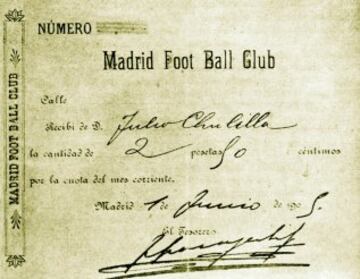 MADRID FOOT BALL CLUB
NÚMERO
Madrid Foot Ball Club
Calle
Recibí de D. Julio Chulilla
la cantidad de 2 pesetas 50 céntimos
por la cuota del mes corriente.
Madrid 1 Junio de 1905.
El Tesorero